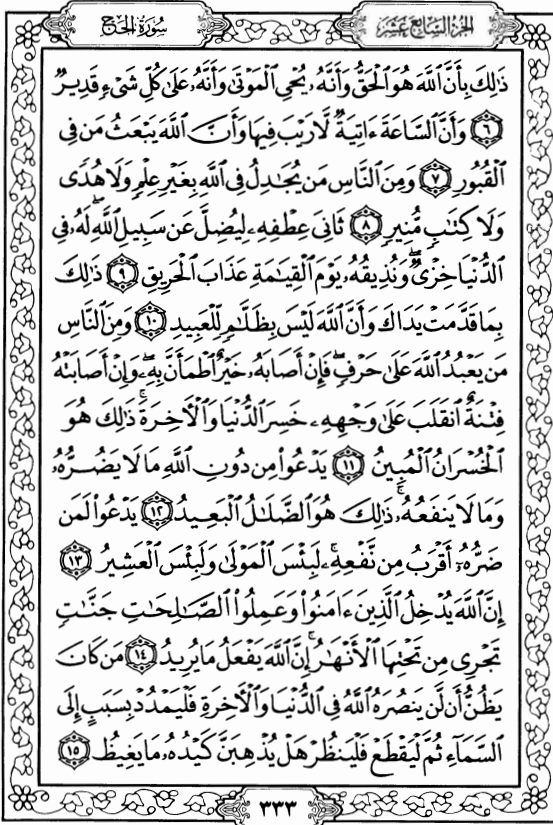 الجزء السابع عشر سورة الحج
ذَٰلِكَ بِأَنَّ ٱللَّهَ هُوَ ٱلْحَقُّ وَأَنَّهُۥ يُحْىِ ٱلْمَوْتَىٰ وَأَنَّهُۥ عَلَىٰ كُلِّ شَىْءٍ قَدِيرٌ
٦ وَأَنَّ ٱلسَّاعَةَ ءَاتِيَةٌ لَّا رَيْبَ فِيهَا وَأَنَّ ٱللَّهَ يَبْعَثُ مَن فِى
ٱلْقُبُورِ ٧ وَمِنَ ٱلنَّاسِ مَن يُجَٰدِلُ فِى ٱللَّهِ بِغَيْرِ عِلْمٍ وَلَا هُدًى
وَلَا كِتَٰبٍ مُّنِيرٍ ٨ ثَانِىَ عِطْفِهِۦ لِيُضِلَّ عَن سَبِيلِ ٱللَّهِ ۖ لَهُۥ فِى
ٱلدُّنْيَا خِزْىٌ ۖ وَنُذِيقُهُۥ يَوْمَ ٱلْقِيَٰمَةِ عَذَابَ ٱلْحَرِيقِ ٩ ذَٰلِكَ
بِمَا قَدَّمَتْ يَدَاكَ وَأَنَّ ٱللَّهَ لَيْسَ بِظَلَّٰمٍ لِّلْعَبِيدِ ١٠ وَمِنَ ٱلنَّاسِ
مَن يَعْبُدُ ٱللَّهَ عَلَىٰ حَرْفٍ ۖ فَإِنْ أَصَابَهُۥ خَيْرٌ ٱطْمَأَنَّ بِهِۦ ۖ وَإِنْ أَصَابَتْهُ
فِتْنَةٌ ٱنقَلَبَ عَلَىٰ وَجْهِهِۦ خَسِرَ ٱلدُّنْيَا وَٱلْأَخِرَةَ ۚ ذَٰلِكَ هُوَ
ٱلْخُسْرَانُ ٱلْمُبِينُ ١١ يَدْعُوا۟ مِن دُونِ ٱللَّهِ مَا لَا يَضُرُّهُۥ
وَمَا لَا يَنفَعُهُۥ ۚ ذَٰلِكَ هُوَ ٱلضَّلَٰلُ ٱلْبَعِيدُ ١٢ يَدْعُوا۟ لَمَن
ضَرُّهُۥٓ أَقْرَبُ مِن نَّفْعِهِۦ ۚ لَبِئْسَ ٱلْمَوْلَىٰ وَلَبِئْسَ ٱلْعَشِيرُ ١٣
إِنَّ ٱللَّهَ يُدْخِلُ ٱلَّذِينَ ءَامَنُوا۟ وَعَمِلُوا۟ ٱلصَّٰلِحَٰتِ جَنَّٰتٍ
تَجْرِى مِن تَحْتِهَا ٱلْأَنْهَٰرُ ۚ إِنَّ ٱللَّهَ يَفْعَلُ مَا يُرِيدُ ١٤ مَن كَانَ
يَظُنُّ أَن لَّن يَنصُرَهُ ٱللَّهُ فِى ٱلدُّنْيَا وَٱلْأَخِرَةِ فَلْيَمْدُدْ بِسَبَبٍ إِلَى
ٱلسَّمَآءِ ثُمَّ لْيَقْطَعْ فَلْيَنظُرْ هَلْ يُذْهِبَنَّ كَيْدُهُۥ مَا يَغِيظُ ١٥
٣٣٣